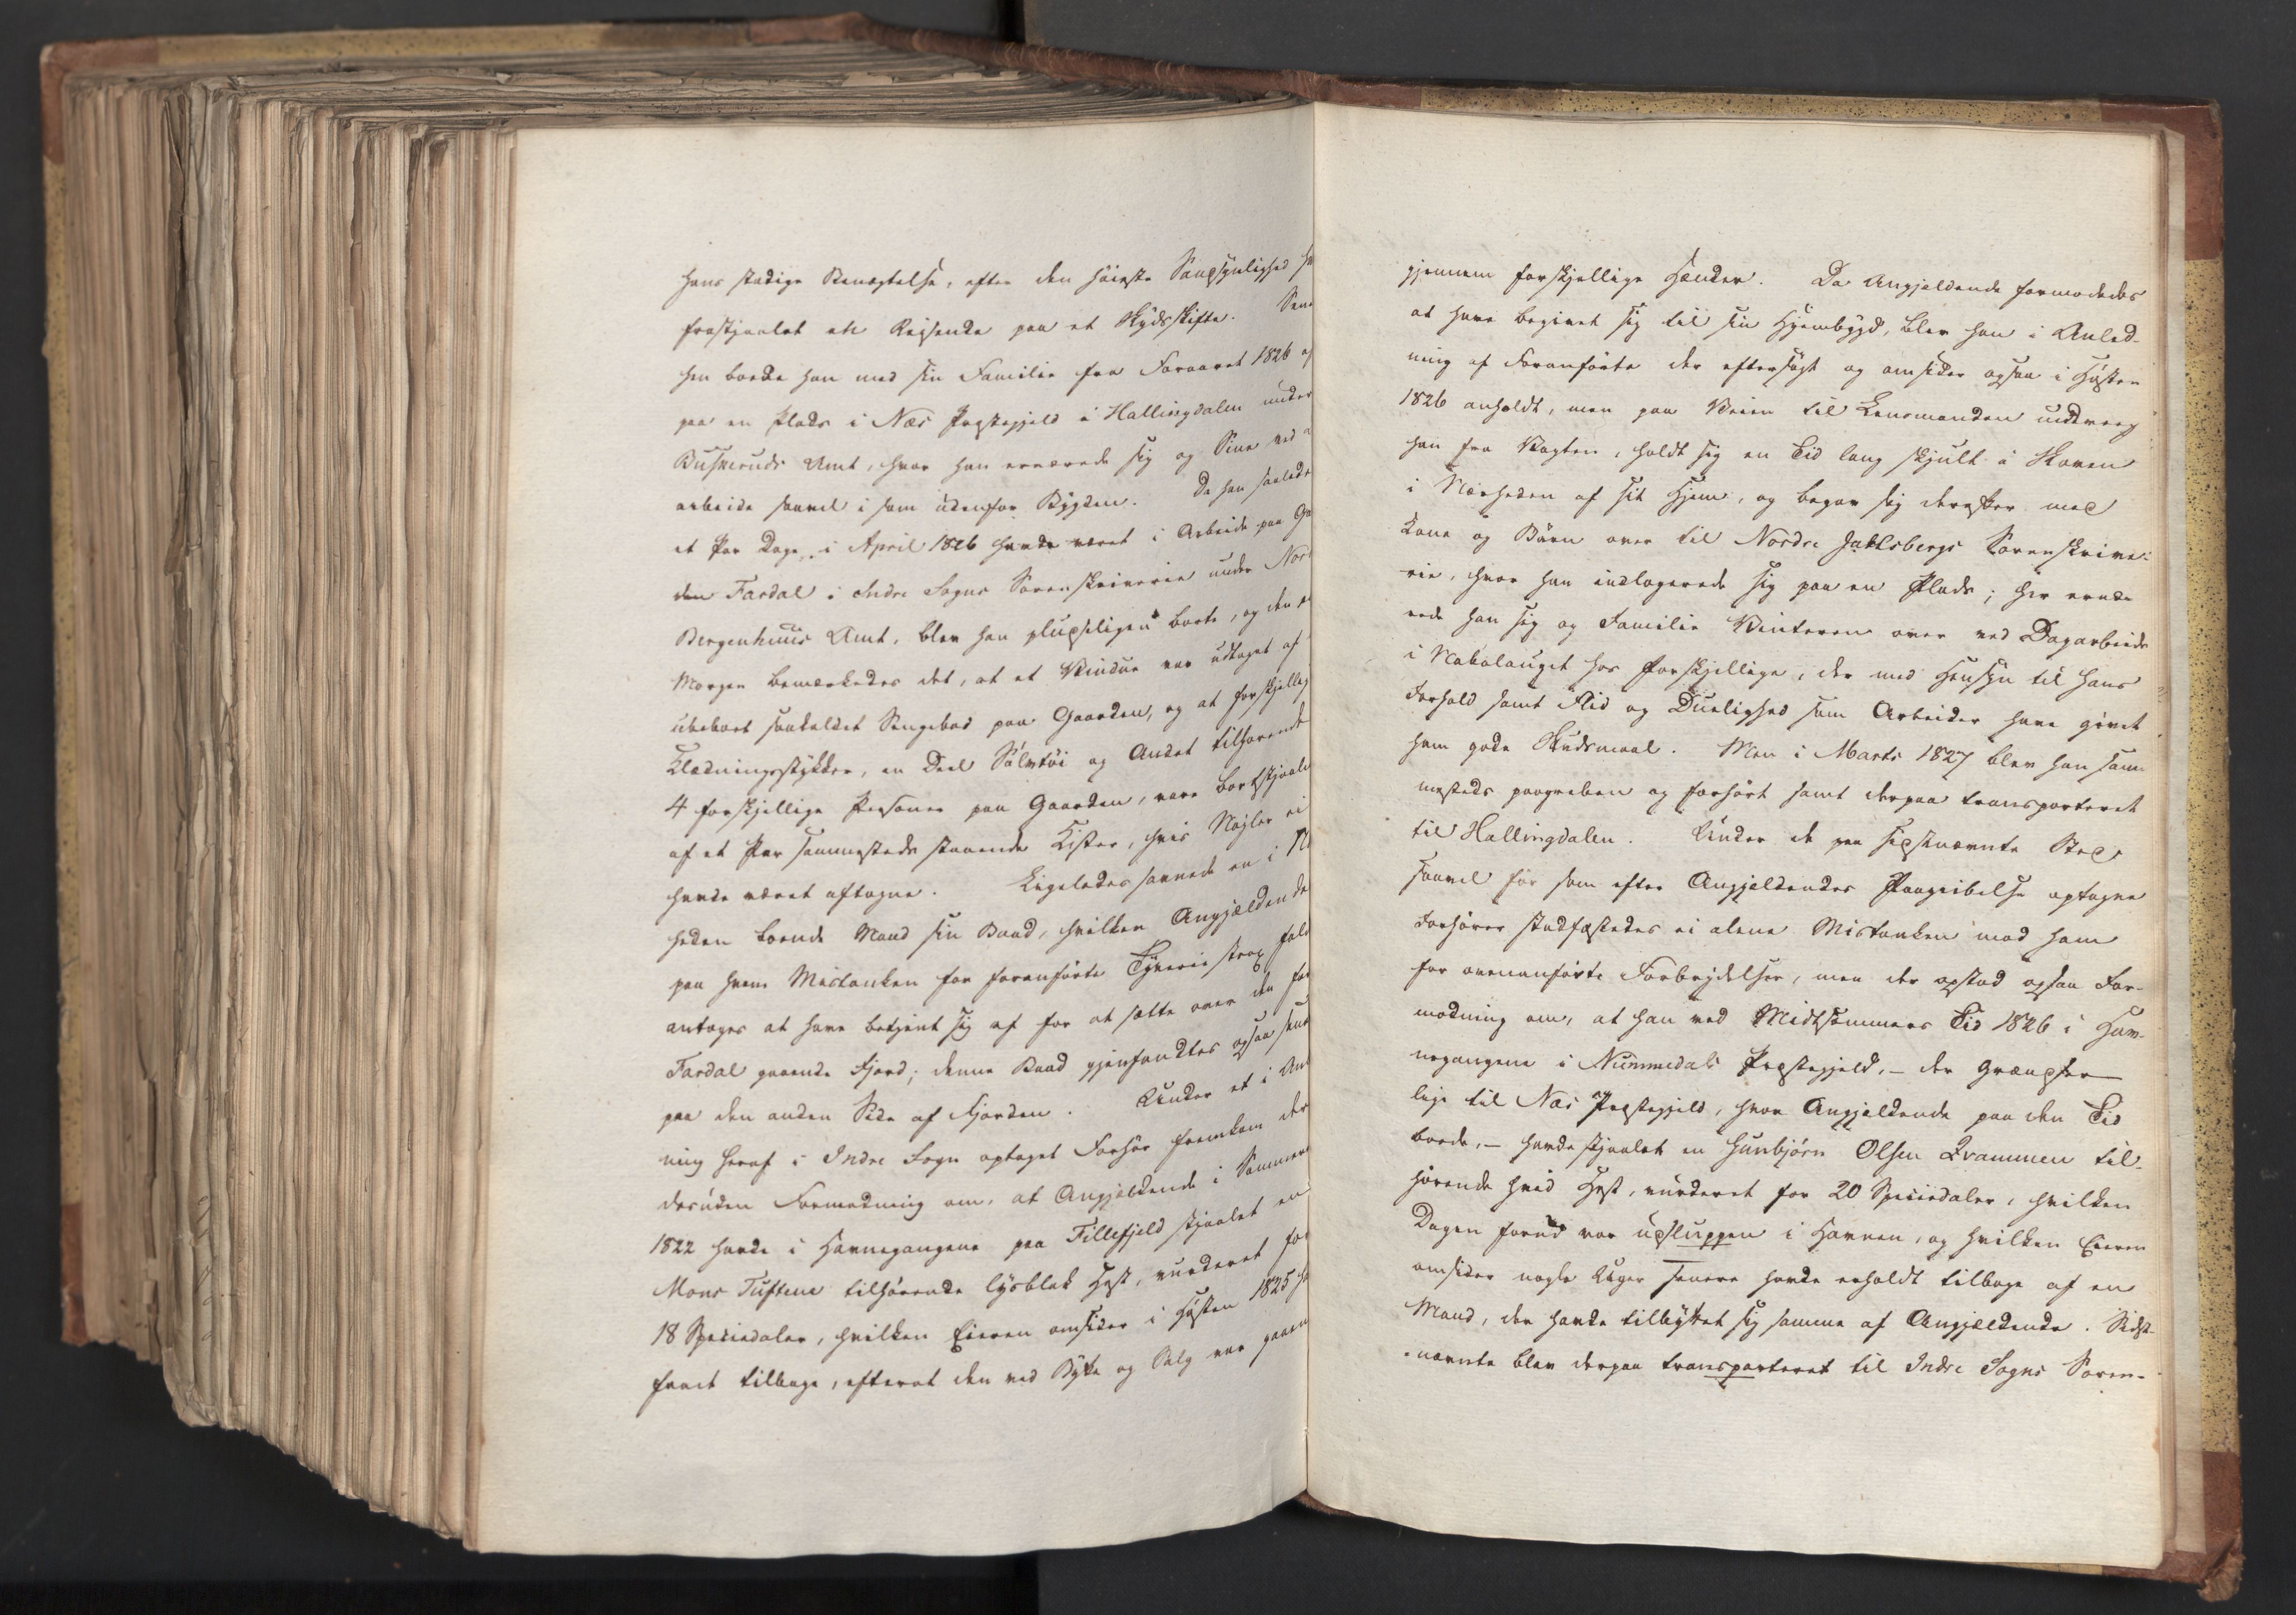 hans stadige Benægtelse, efter den høieste Sandsynlighed
frastjaalet en Reisende paa et Skydsskifte. Sene
hen boede han med sin Familie fra Foraaret 1826 af
paa en Plads i Næs Præstegjeld i Hallingdalen under
Buskeruds Amt, hvor han ernærede sig og Sine ved
arbeide saavel i som udenfor Bygden. Da han saalede
et Par Dage i April 1826 havde været i Arbeide paa
den Fardal i Indre Sogns Sorenskriverie under Nor
Bergenhuus Amt, blev han pludseligen borte, og den
Morgen bemærkedes det, at et Vindue var udtaget af
ubeboet saakaldet Sengebod paa Gaarden, og at forskjellig
Klædningsstykker, en Deel Sølvtøi og Andet tilhørende
4 forskjellige Personer paa Gaarden, vare bortstjaale
af et Par sammesteds staaende Kister, hvis Nøgler ei
havde været aftagne. Ligeledes savnede en i
heden boende Mand sin Baad, hvilken Angjældende
paa hvem Mistanken for foranførte Tyverie strax fald
antages at have betjent sig af for at sætte over den
Fardal gaaende Fjord; denne Baad gjenfandtes ogsaa
paa den anden Side af Fjorden. Under et i An
ning heraf i Indre Sogn optaget Forhør fremkom der
desuden Formodning om, at Angjældende i Sommere
1822 havde i Havnegangene paa Fillefjeld stjaalet en
Mons Tuftene tilhørende lysblak Hest, vurderet for
18 Speciedaler, hvilken Eieren omsider i Høsten 1825
faaet tilbage, efterat den ved Bytte og Salg var gaaen
gjennem forskjellige Hænder. Da Angjeldende formodedes
at have begivet sig til sin Hjembygd, blev han i Anled-
ning af Foranførte der eftersøgt og omsider ogsaa i Høsten
1826 anholdt, men paa Veien til Lensmanden undveeg
han fra Vagten, holdt sig en Tid lang skjult i Skoven
i Nærheden af sit Hjem, og begav sig derefter med
Kone og Børn over til Nordre Jarlsbergs Sorenskrive-
rie, hvor han indlogerede sig paa en Plads; her ernæ-
rede han sig og Familie Vinteren over ved Dagarbeide
i Nabolauget hos forskjellige, der med Hensyn til hans
Forhold samt Flid og Duelighed som Arbeider have givet
ham gode Skudsmaal. Men i Marts 1827 blev han sam-
mesteds paagreben og forhørt samt derpaa transporteret
til Hallingdalen. Under de paa sidstnævnte Sted
saavel før som efter Angjældendes Paagribelse optagne
Forhører stadfæstedes ei alene Mistanken mod ham
for ovenanførte Forbrydelser, men der opstod ogsaa For-
modning om, at han ved Midtsommers Tid 1826 i Hav-
negangene i Nummedals Præstegjeld, – der grændser
lige til Næs Præstegjeld, hvor Angjældende paa den Tid
boede, – havde stjaalet en Gunbjørn Olsen Tvammen til-
hørende hvid Hest, vurderet for 20 Speciedaler, hvilken
Dagen forud var opsluppen i Havnen, og hvilken Eieren
omsider nogle Uger senere havde erholdt tilbage af en
Mand, der havde tilbyttet sig samme af Angjældende. Sidst-
nævnte blev derpaa transporteret til Indre Sogns Soren-